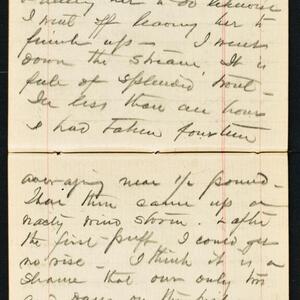 her to do likewise
I went off leaving her to
finish up – I went
down the stream. It is
full of splendid trout –
In less than an hour
I had taken fourteen
averaging near 1/2 pound –
Then there came up a
nasty wind storm. & after
the first puff I could get
no rise – I think it is a
shame that our only two
days on the